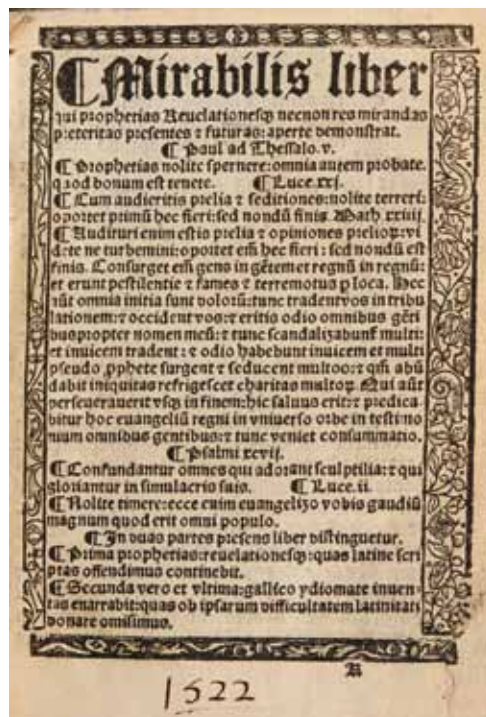 ¶Mirabilis liber
qui prophetias Reuelationesqʒ necnon res mirandas
preteritas presentes ⁊ futuras: aperte demonstrat.
¶ Paul ad Thessalo. v.
¶ Prophetias nolite spernere: omnia autem probate.
quod bonum est tenete. ¶ Luce. xxj.
¶ Cum audieritis prelia ⁊ seditiones: nolite terreri:
oportet primũ hec fieri: sed nondũ finis. Math xxiiij.
¶ Audituri enim estis prelia ⁊ opiniones prelioꝝ: vi
dete ne turbemini: oportet em̃ hec fieri: sed nondũ est
finis. Consurget em̃ gens in gẽtem et regnũ in regnũ:
et erunt pestilentie ⁊ fames ⁊ terremotus ꝑ loca. Hec
aũt omnia initia sunt dolorũ: tunc tradent vos in tribu
lationem: ⁊ occident vos: ⁊ eritis odio omnibus gẽti
bus propter nomen meũ: ⁊ tunc scandalizabunt̃ multi:
et inuicem tradent: ⁊ odio habebunt inuicem et multi
pseudo ꝓphete surgent ⁊ seducent multos: ⁊ qm̃ abũ
dabit iniquitas refrigescet charitas multoꝝ. Qui aũt
perseuerauerit vsqʒ in finem: hic saluus erit: ⁊ predica
bitur hoc euangeliũ regni in vniuerso orbe in testimo
nium omnibus gentibus: ⁊ tunc veniet consummatio.
¶ Psalmi xcvij.
¶ Confundantur omnes qui adorant sculptilia: ⁊ qui
gloriantur in simulacris suis. ¶ Luce. ii.
¶ Nolite timere: ecce enim euangelizo vobis gaudiũ
magnum quod erit omni populo.
¶ In duas partes presens liber distinguetur.
¶ Prima prophetias: reuelationesqʒ: quas latine scri
ptas offendimus continebit.
¶ Secunda vero et vltima: gallico ydiomate inuen
tas enarrabit: quas ob ipsarum difficultatem latinitati
donare omisimus.
A
1522